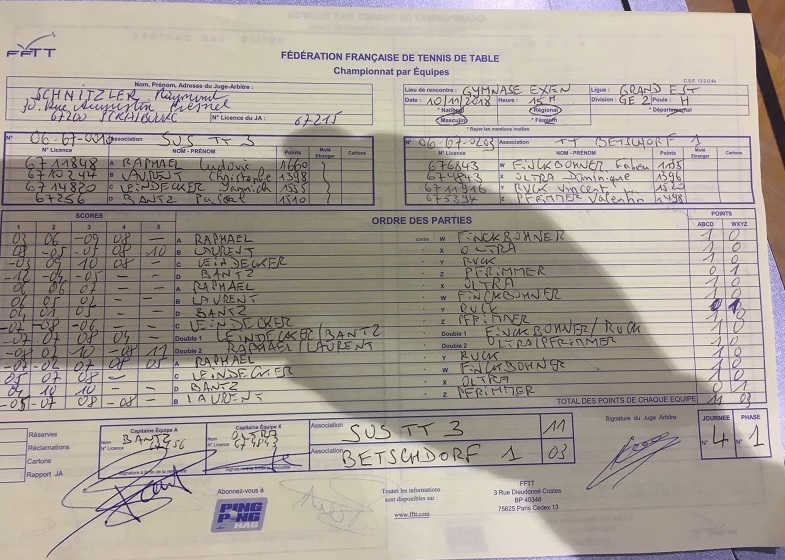 FFTT
FÉDÉRATION FRANÇAISE DE TENNIS DE TABLE
Championnat par Équipes
C.S.F. 12 2 0 4a
Nom, Prénom, Adresse du Juge-Arbitre :
SCHNITZLER Raymond
30, Rue Augustin Fresnel
67200 STRASBOURG N° Licence du JA : 67215
Lieu de rencontre : GYMNASE EXEN Ligue : GRAND EST
Date : 10/11/2018 Heure : 15H Division : GE 2 Poule : H
* National * Régional * Départemental
Masculin * Féminin
* Rayer les mentions inutiles
N° 06-67-0010 Association SUS TT 3
N° Licence NOM - PRÉNOM Points Muté Etranger Cartons
6711848 A RAPHAEL Ludovic 1660
6710244 B LAURENT Christophe 1398
6714820 C LEINDECKER Yannick 1555
67256 D BANTZ Pascal 1510
Association TT BETSCHDORF 1
N° Licence NOM - PRÉNOM Points Muté Etranger Cartons
676843 W FINCKBOHNER Fabien 1155
674843 X OLTRA Dominique 1396
6711916 Y RUCK Vincent 1520
675394 Z PFRIMMER Valentin 1498
SCORES ORDRE DES PARTIES POINTS
1 2 3 4 5 ABCD WXYZ
03 06 -09 08 — A RAPHAEL contre W FINCKBOHNER 1 0
08 -05 -07 08 10 B LAURENT X OLTRA 1 0
-03 09 10 08 — C LEINDECKER Y RUCK 1 0
-12 -09 -05 — D BANTZ Z PFRIMMER 0 1
06 06 07 — A RAPHAEL X OLTRA 1 0
06 05 02 — B LAURENT W FINCKBOHNER 1 0
04 01 05 — D BANTZ Y RUCK 1 0
-07 -08 -06 — C LEINDECKER Z PFRIMMER 0 1
-07 07 08 04 — Double 1 LEINDECKER/BANTZ FINCKBOHNER/RUCK 1 0
-08 07 10 -08 11 Double 2 RAPHAEL/LAURENT OLTRA/PFRIMMER 1 0
A RAPHAEL Y RUCK 1 0
05 07 08 — C LEINDECKER W FINCKBOHNER 1 0
10 10 — D BANTZ X OLTRA 1 0
B LAURENT Z PFRIMMER 0 1
TOTAL DES POINTS DE CHAQUE EQUIPE 11 03
Réserves
Réclamations
Cartons
Rapport JA
Capitaine Équipe A
Nom BANTZ
N° Licence 67256
Signature à la fin de la rencontre
Capitaine Équipe X
Nom OLTRA
N° Licence 674843
Association SUS TT 3 11
Association BETSCHDORF 1 03
Signature du Juge Arbitre
JOURNÉE N° 4
PHASE N° 1
Abonnez-vous à
PING PONG MAG
Toutes les informations
sont disponibles sur :
www.fftt.com
FFTT
3 Rue Dieudonné Costes
BP 40348
75625 Paris Cedex 13